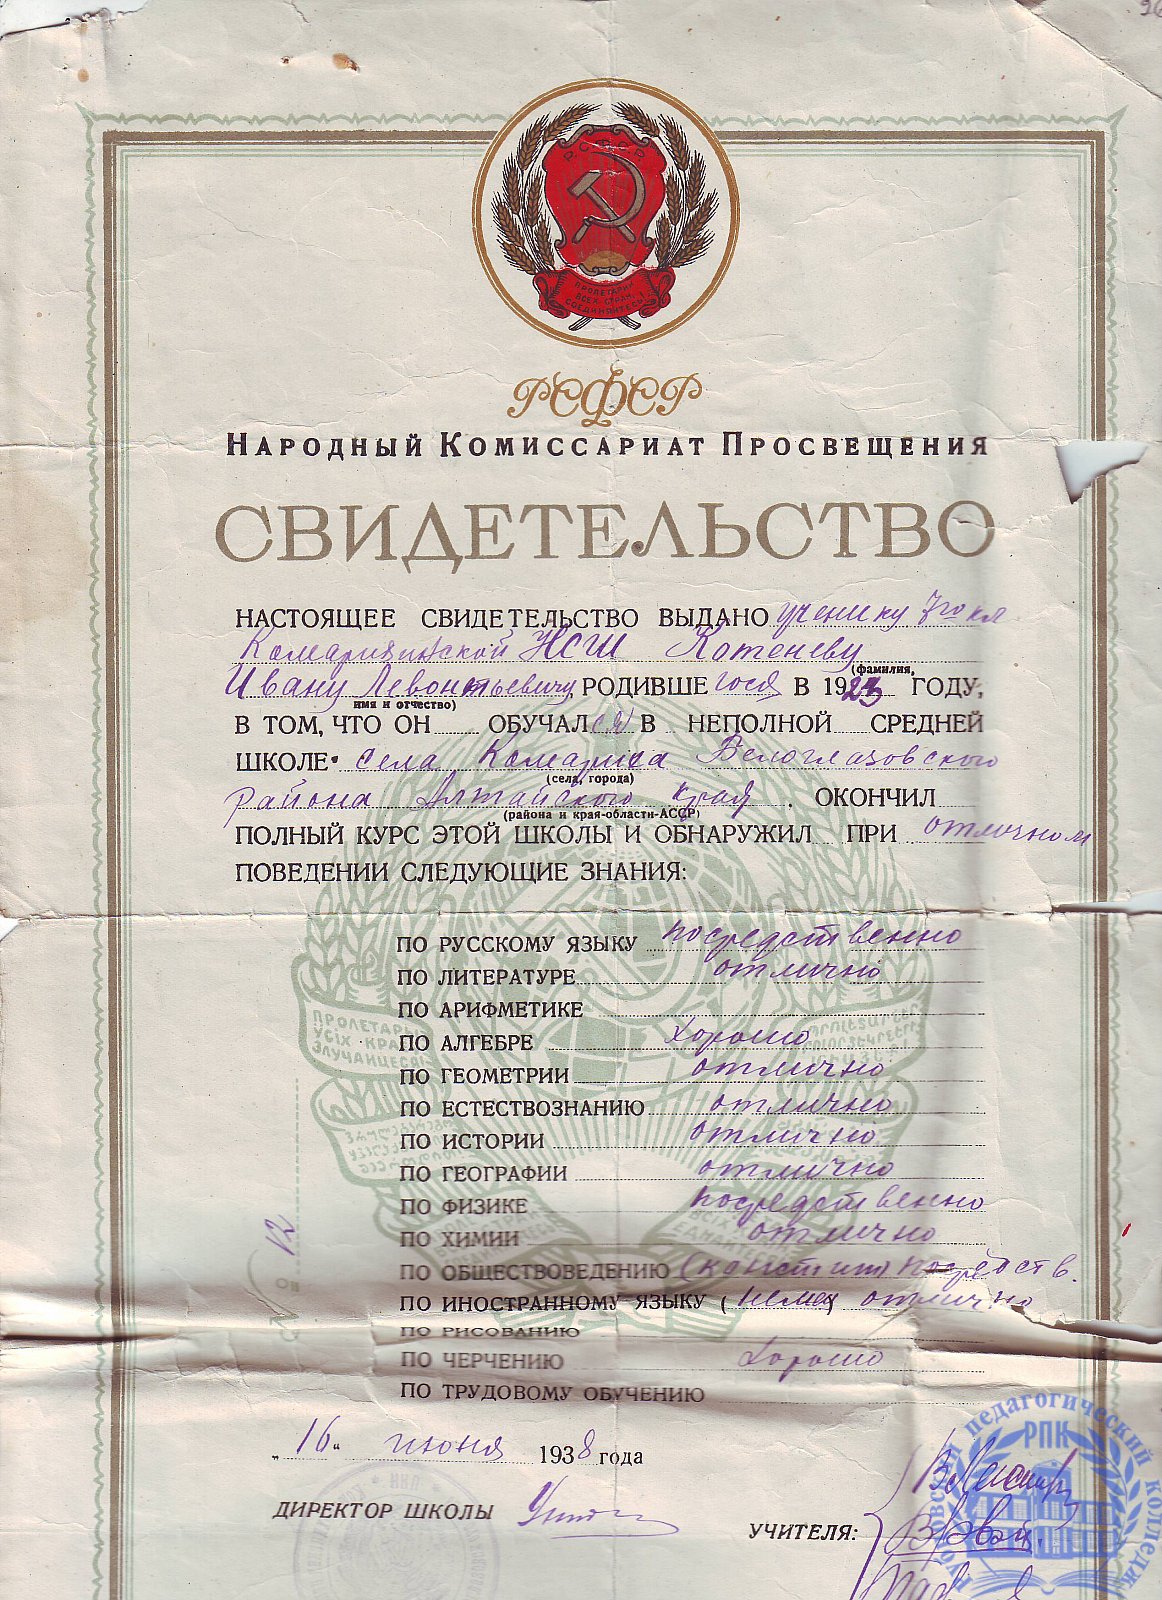 Р.С.Ф.С.Р.
ПРОЛЕТАРИИ
ВСЕХ СТРАН,
СОЕДИНЯЙТЕСЬ!
РСФСР
НАРОДНЫЙ КОМИССАРИАТ ПРОСВЕЩЕНИЯ
СВИДЕТЕЛЬСТВО
НАСТОЯЩЕЕ СВИДЕТЕЛЬСТВО ВЫДАНО ученику 7го кл
Комарихинской НСШ Котеневу
(фамилия,
Ивану Левонтьевичу РОДИВШЕгося В 1923 ГОДУ,
имя и отчество)
В ТОМ, ЧТО ОН ОБУЧАЛся В НЕПОЛНОЙ СРЕДНЕЙ
ШКОЛЕ села Комариха Белоглазовского
(села, города)
района Алтайского края. ОКОНЧИЛ
(района и края-области-АССР)
ПОЛНЫЙ КУРС ЭТОЙ ШКОЛЫ И ОБНАРУЖИЛ ПРИ отличном
ПОВЕДЕНИИ СЛЕДУЮЩИЕ ЗНАНИЯ:
ПО РУССКОМУ ЯЗЫКУ посредственно
ПО ЛИТЕРАТУРЕ отлично
ПО АРИФМЕТИКЕ
ПО АЛГЕБРЕ хорошо
ПО ГЕОМЕТРИИ отлично
ПО ЕСТЕСТВОЗНАНИЮ отлично
ПО ИСТОРИИ отлично
ПО ГЕОГРАФИИ отлично
ПО ФИЗИКЕ посредственно
ПО ХИМИИ отлично
ПО ОБЩЕСТВОВЕДЕНИЮ (констит) посредств.
ПО ИНОСТРАННОМУ ЯЗЫКУ (немец) отлично
ПО РИСОВАНИЮ
ПО ЧЕРЧЕНИЮ хорошо
ПО ТРУДОВОМУ ОБУЧЕНИЮ
„16" июня 1938 года
ДИРЕКТОР ШКОЛЫ
УЧИТЕЛЯ:
педагогический колледж
РПК